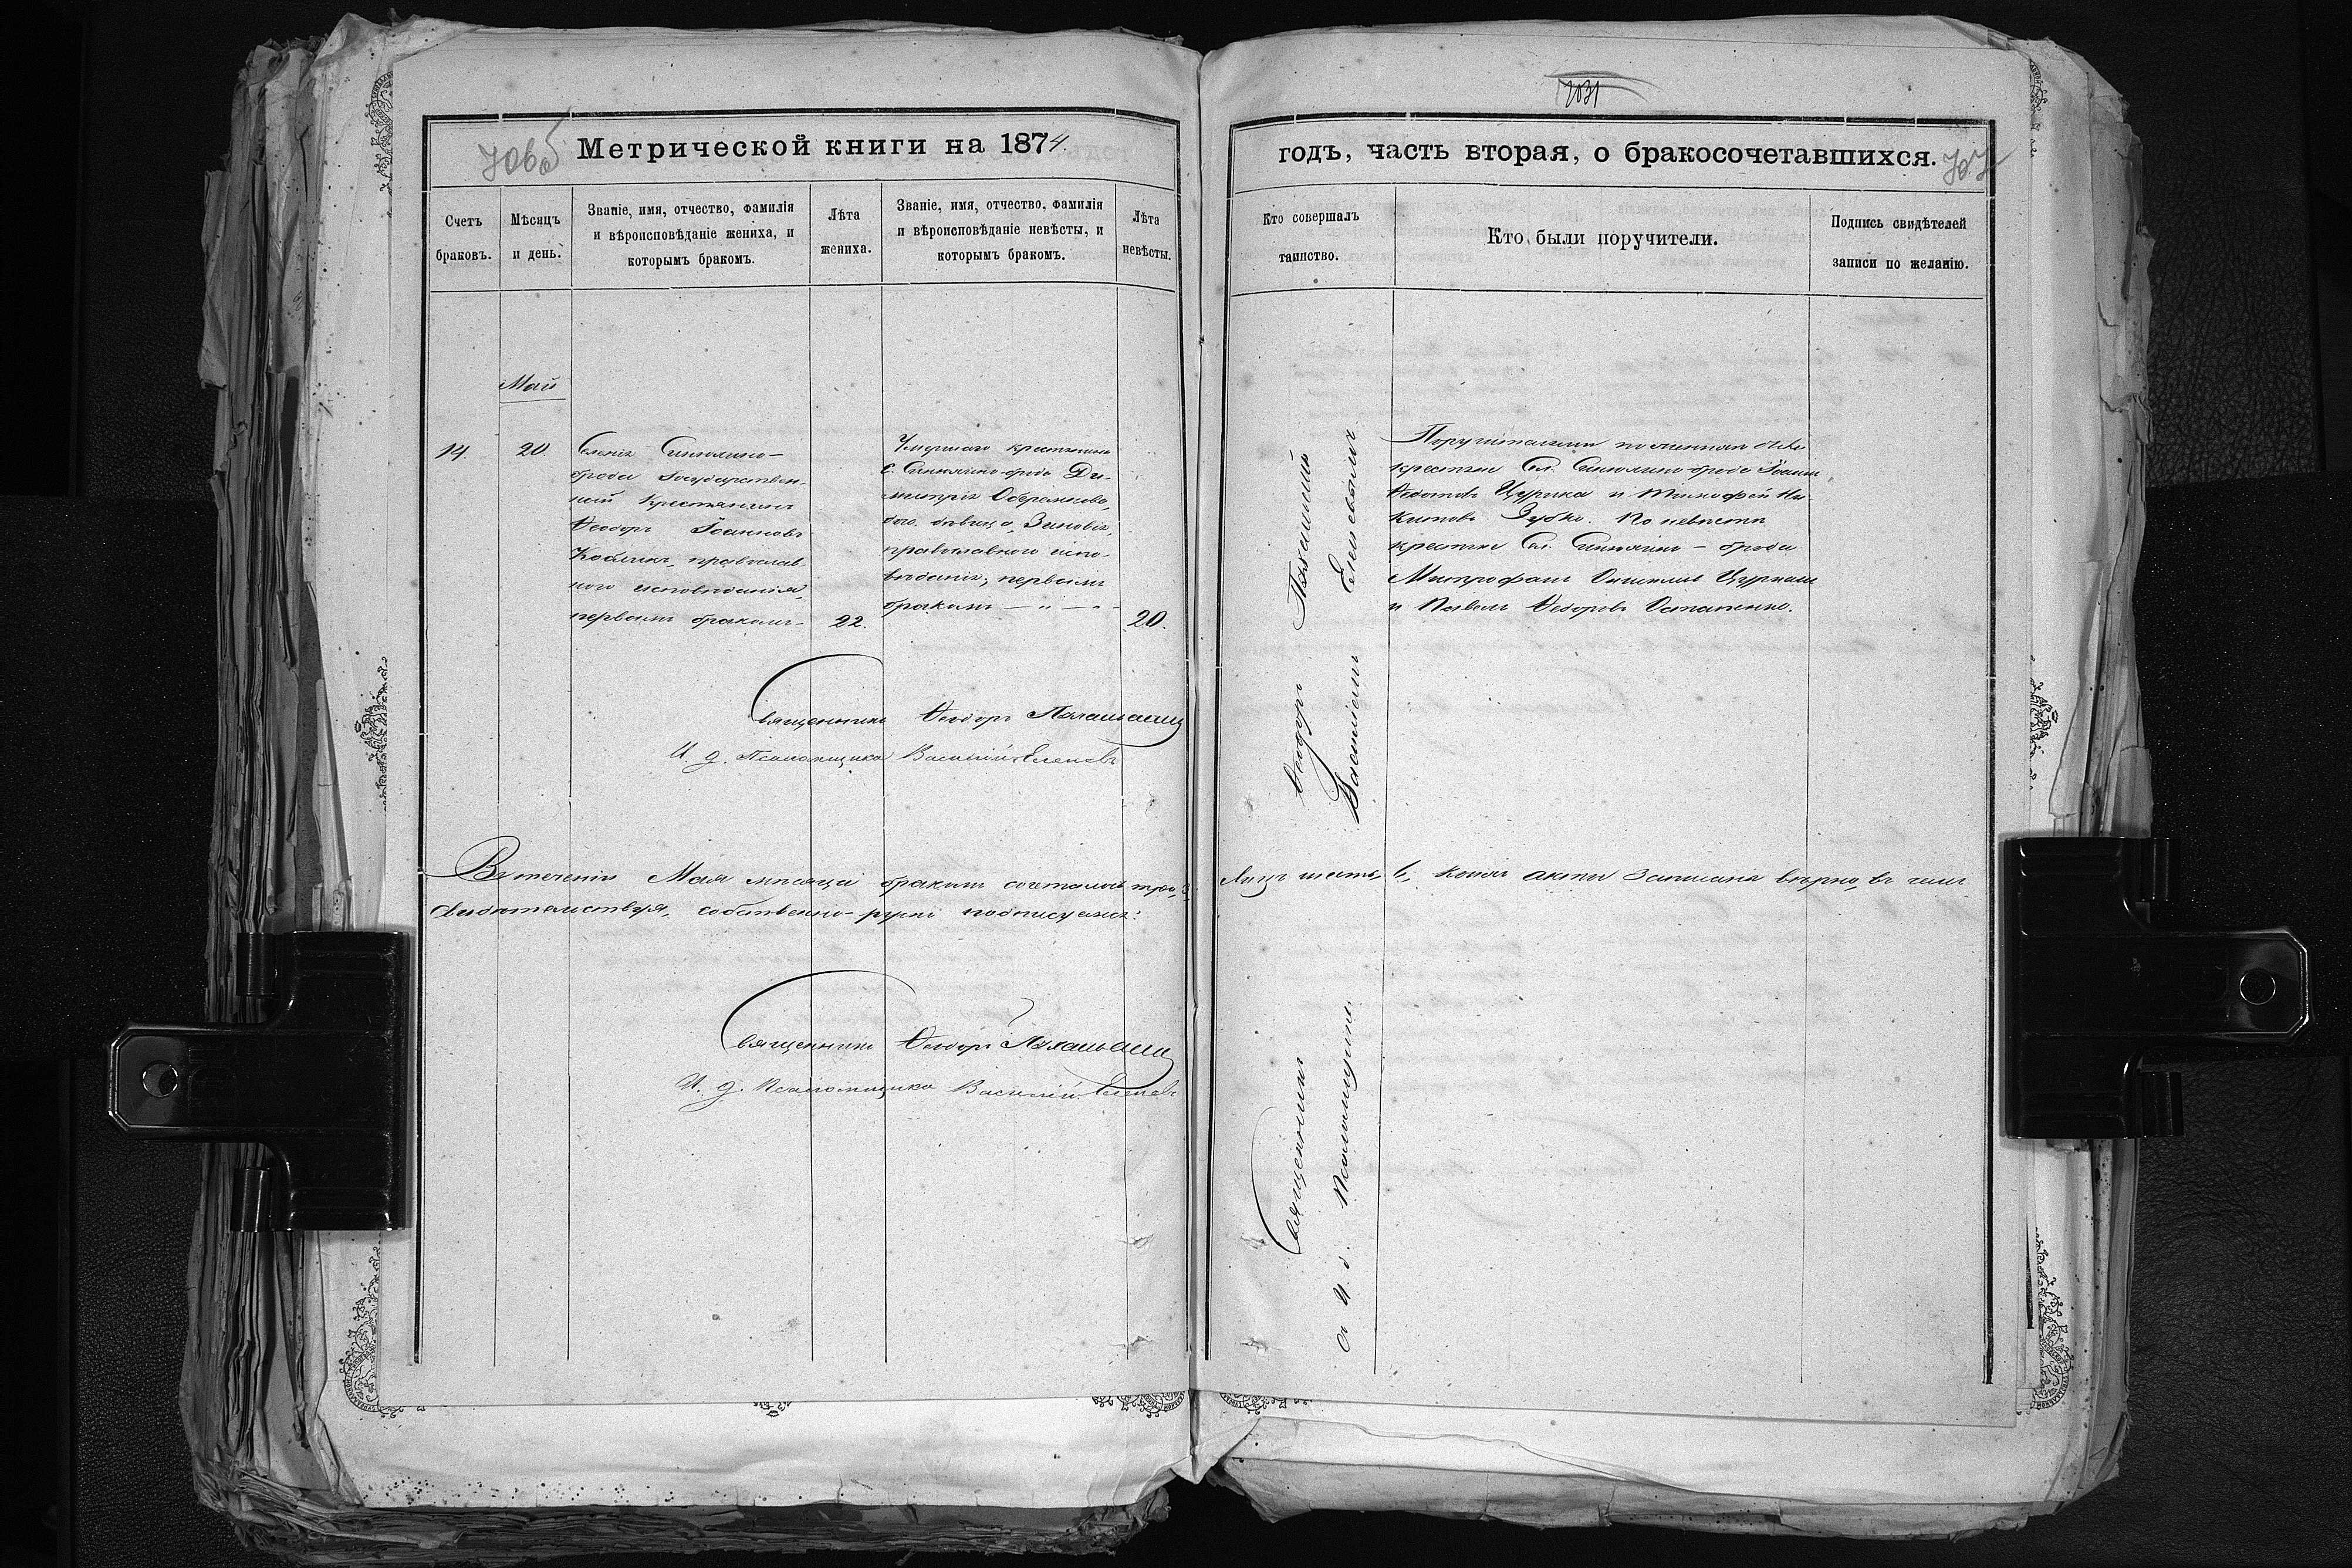 2031
706об
Метрической книги на 1874.
Счетъ браковъ.
Мѣсяцъ и день.
Званіе, имя, отчество, фамилія и вѣроисповѣданіе жениха, и которымъ бракомъ.
Лѣта жениха.
Званіе, имя, отчество, фамилія и вѣроисповѣданіе невѣсты, и которымъ бракомъ.
Лѣта невѣсты.
Май
14.
20.
Селенія
брода государствен-
ный крестьянинъ
Ѳеодоръ Іоанновъ
православ-
ного исповѣданія,
первымъ бракомъ
22.
Умершаго крестьянина
с. Ди-
митрія
дѣвица, Зиновія,
православного испо-
вѣданія, первымъ
бракомъ
20.
Священникъ Ѳеодоръ
И. д. Псаломщика Василій
Въ теченіи Мая мѣсяца бракомъ
свидѣтельствуя, собственно-ручно подписуемся:
Священникъ Ѳеодоръ
И. д. Псаломщика Василій
годъ, часть вторая, о бракосочетавшихся.
707
Кто совершалъ таинство.
Кто были поручители.
Подпись свидѣтелей записи по желанію.
Священникъ Ѳеодоръ
съ И. д. Псаломщикомъ Василіемъ
Поручителями по женихѣ были
крестьяне Сл. брода Іоаннъ
Ѳедотовъ и Тимофей Ни-
китовъ Зубко. По невѣстѣ
крестьяне Сл. брода
Митрофанъ
и Павелъ Ѳедоровъ Остапенко.
лицъ шесть, 6, коихъ акты записаны вѣрно, въ чемъ